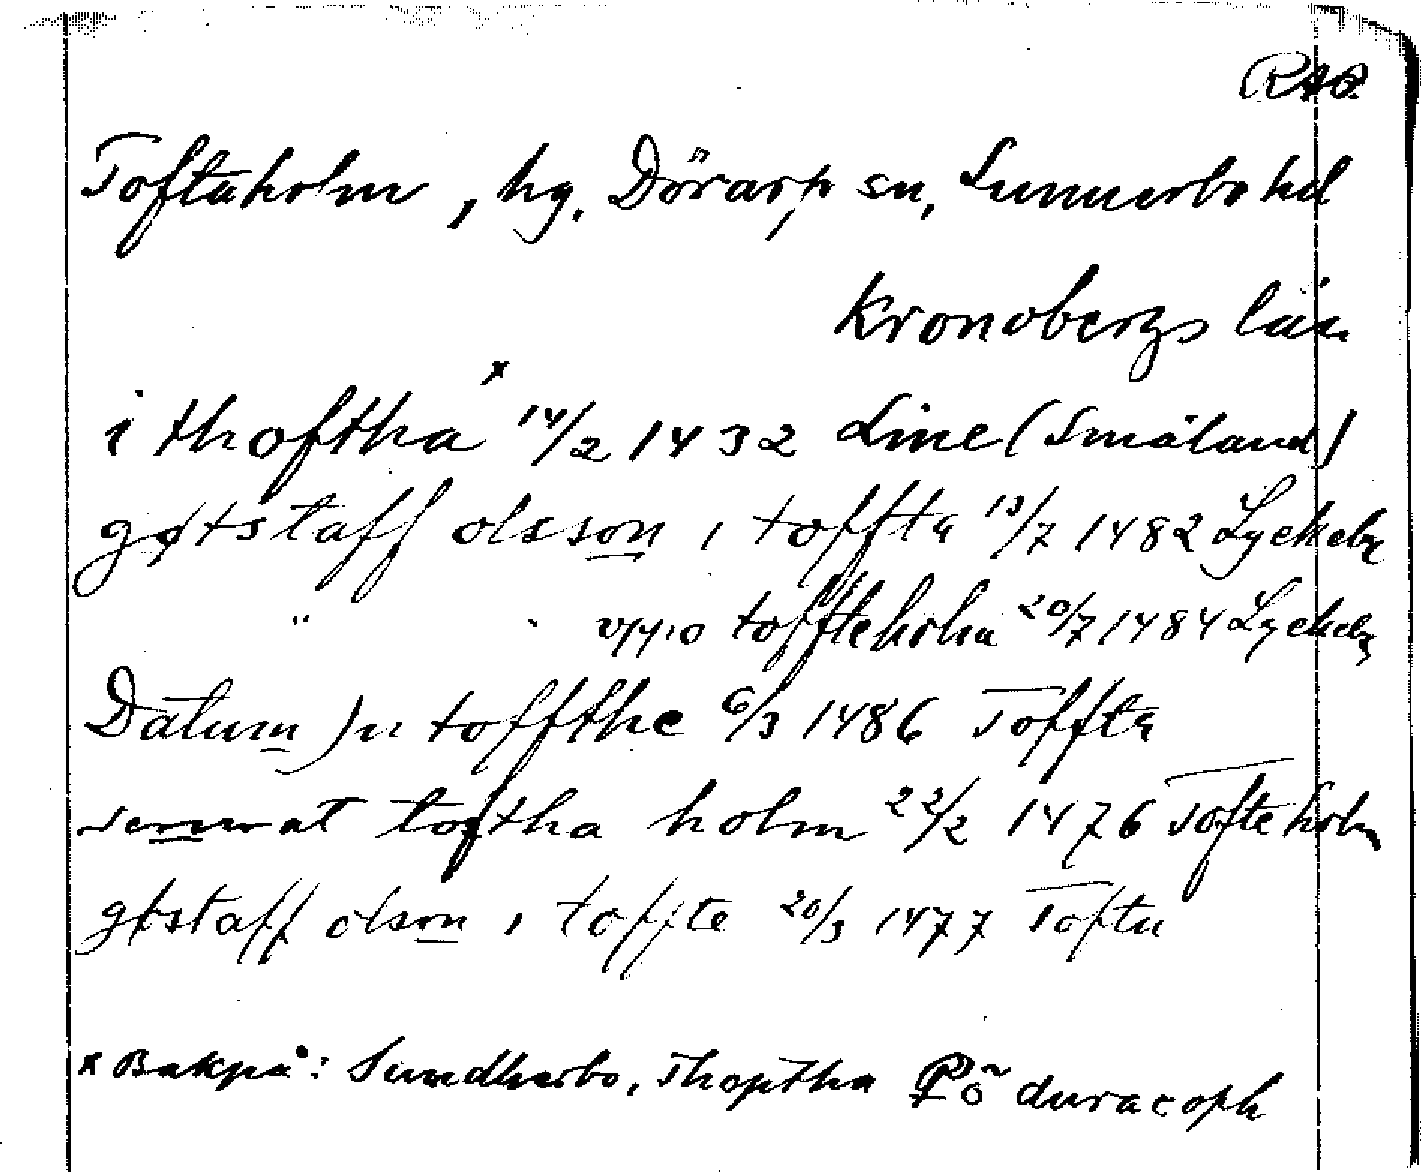 RAp
Toftaholm, hg. Dörarp sn, Sunnerbo hd
Kronobergs län
i thoftha x 14/2 1432 Line (Småland)
gøtstaff olsson i toffta 13/7 1482 Lyckeby
" " oppo toffteholm 20/7 1484 Lyckeby
Datum )n toffthe 6/3 1486 Toffta
toftha holm 22/2 1476 Tofteholm
gøstaff olson i toffte 20/3 1477 Tofta
x Bakpå: Sundherbo, Thoptha duracoph